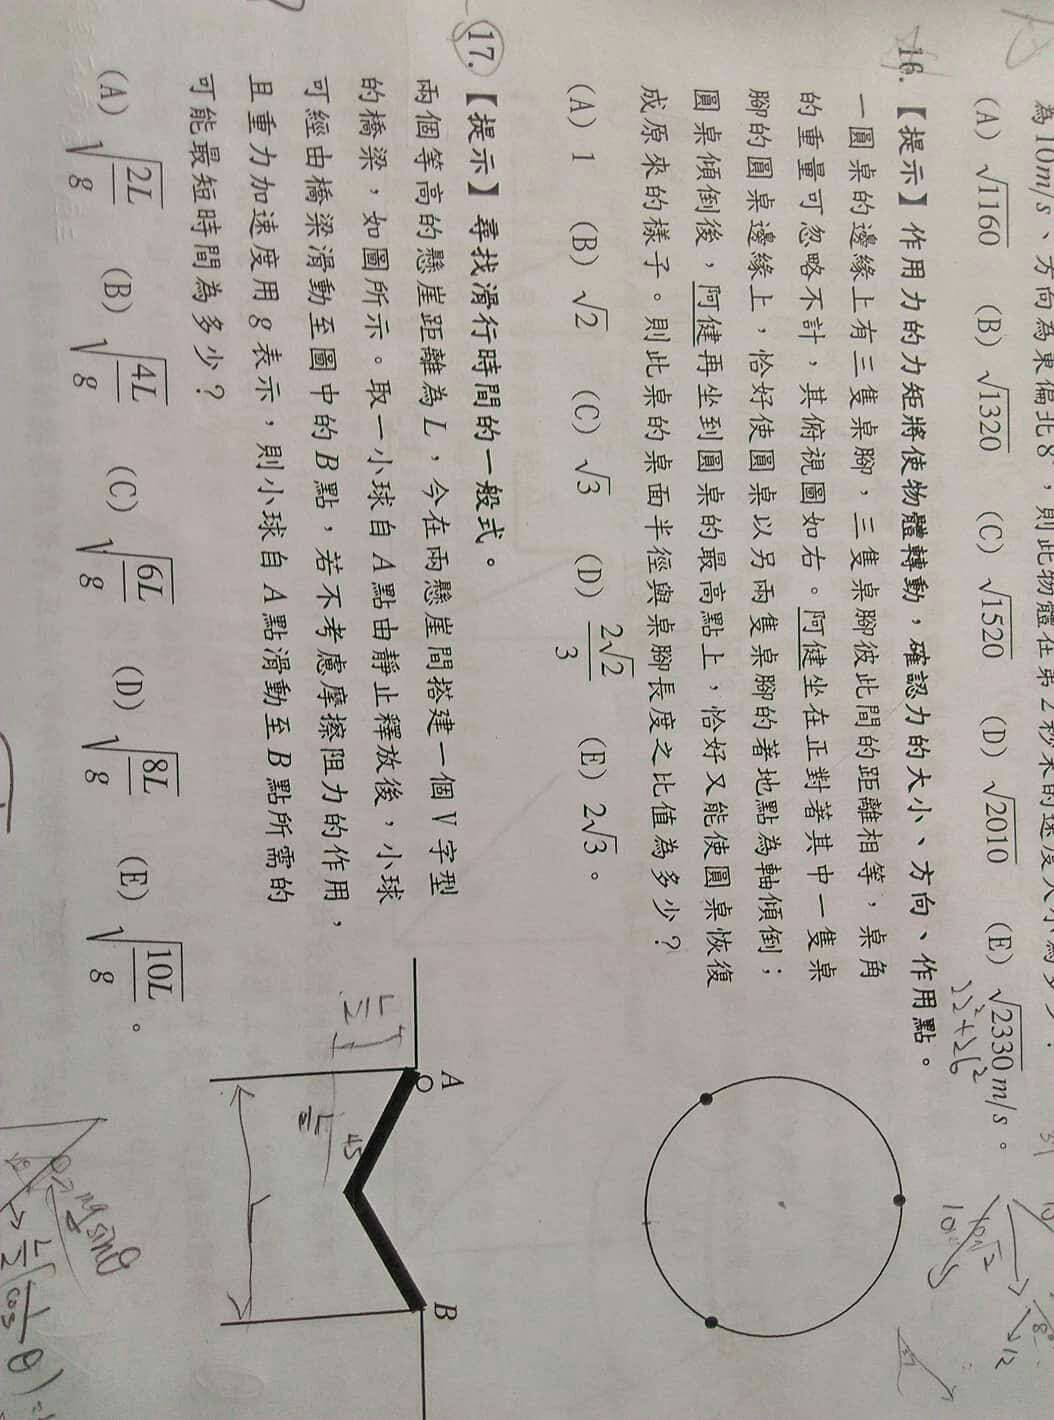 為10m/s、方向為東偏北8°，則此物體在第2秒末的速度大小為多少？
(A) √1160 (B) √1320 (C) √1520 (D) √2010 (E) √2330 m/s。
22²+26²
16.【提示】作用力的力矩將使物體轉動，確認力的大小、方向、作用點。
一圓桌的邊緣上有三隻桌腳，三隻桌腳彼此間的距離相等，桌角
的重量可忽略不計，其俯視圖如右。阿健坐在正對著其中一隻桌
腳的圓桌邊緣上，恰好使圓桌以另兩隻桌腳的著地點為軸傾倒；
圓桌傾倒後，阿健再坐到圓桌的最高點上，恰好又能使圓桌恢復
成原來的樣子。則此桌的桌面半徑與桌腳長度之比值為多少？
(A) 1 (B) √2 (C) √3 (D) 2√2/3 (E) 2√3。
17.【提示】尋找滑行時間的一般式。
兩個等高的懸崖距離為L，今在兩懸崖間搭建一個V字型
的橋梁，如圖所示。取一小球自A點由靜止釋放後，小球
可經由橋梁滑動至圖中的B點，若不考慮摩擦阻力的作用，
且重力加速度用g表示，則小球自A點滑動至B點所需的
可能最短時間為多少？
(A) √(2L/g) (B) √(4L/g) (C) √(6L/g) (D) √(8L/g) (E) √(10L/g)。
A
B
45
L/2
L/2
L
mg sinθ